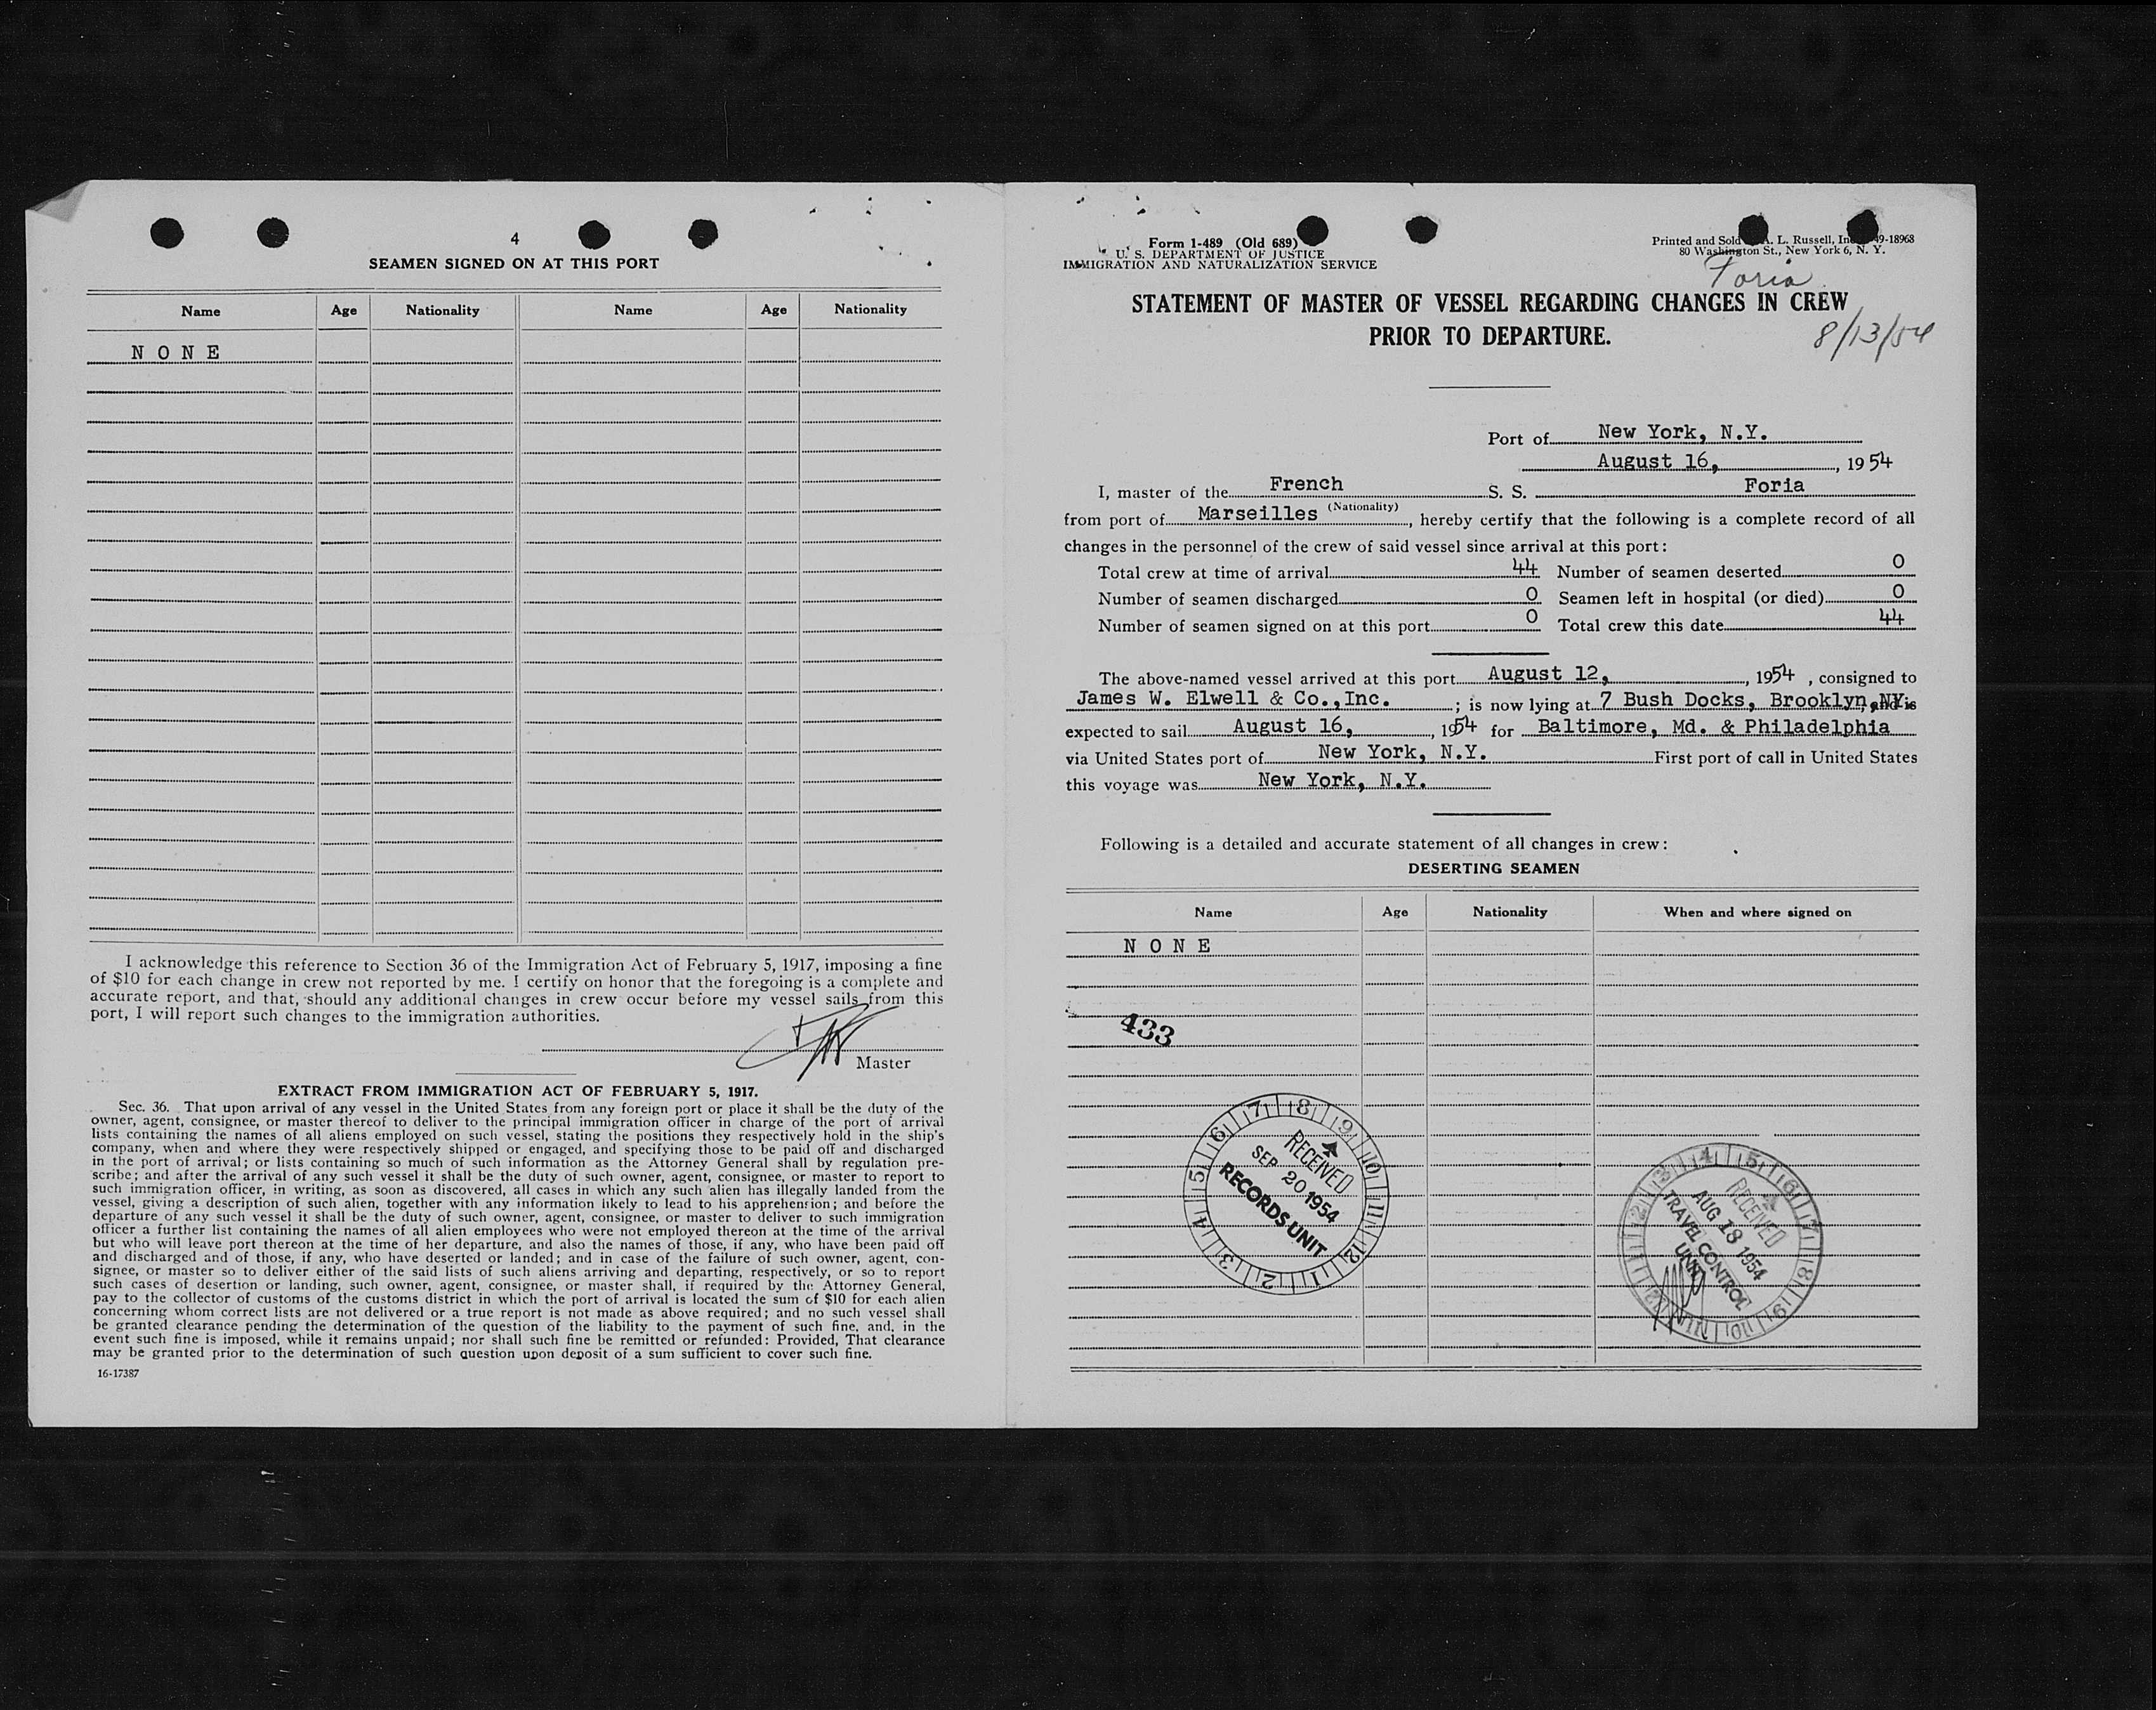 4
SEAMEN SIGNED ON AT THIS PORT
Name Age Nationality Name Age Nationality
N O N E
I acknowledge this reference to Section 36 of the Immigration Act of February 5, 1917, imposing a fine
of $10 for each change in crew not reported by me. I certify on honor that the foregoing is a complete and
accurate report, and that, should any additional changes in crew occur before my vessel sails from this
port, I will report such changes to the immigration authorities.
Master
EXTRACT FROM IMMIGRATION ACT OF FEBRUARY 5, 1917.
Sec. 36. That upon arrival of any vessel in the United States from any foreign port or place it shall be the duty of the
owner, agent, consignee, or master thereof to deliver to the principal immigration officer in charge of the port of arrival
lists containing the names of all aliens employed on such vessel, stating the positions they respectively hold in the ship's
company, when and where they were respectively shipped or engaged, and specifying those to be paid off and discharged
in the port of arrival; or lists containing so much of such information as the Attorney General shall by regulation pre-
scribe; and after the arrival of any such vessel it shall be the duty of such owner, agent, consignee, or master to report to
such immigration officer, in writing, as soon as discovered, all cases in which any such alien has illegally landed from the
vessel, giving a description of such alien, together with any information likely to lead to his apprehension; and before the
departure of any such vessel it shall be the duty of such owner, agent, consignee, or master to deliver to such immigration
officer a further list containing the names of all alien employees who were not employed thereon at the time of the arrival
but who will leave port thereon at the time of her departure, and also the names of those, if any, who have been paid off
and discharged and of those, if any, who have deserted or landed; and in case of the failure of such owner, agent, con-
signee, or master so to deliver either of the said lists of such aliens arriving and departing, respectively, or so to report
such cases of desertion or landing, such owner, agent, consignee, or master shall, if required by the Attorney General,
pay to the collector of customs of the customs district in which the port of arrival is located the sum of $10 for each alien
concerning whom correct lists are not delivered or a true report is not made as above required; and no such vessel shall
be granted clearance pending the determination of the question of the liability to the payment of such fine, and, in the
event such fine is imposed, while it remains unpaid; nor shall such fine be remitted or refunded: Provided, That clearance
may be granted prior to the determination of such question upon deposit of a sum sufficient to cover such fine.
16-17387
Form 1-489 (Old 689)
U. S. DEPARTMENT OF JUSTICE
IMMIGRATION AND NATURALIZATION SERVICE
Printed and Sold L. Russell, 49-18968
80 Washington St., New York 6, N. Y.
Foria
STATEMENT OF MASTER OF VESSEL REGARDING CHANGES IN CREW
PRIOR TO DEPARTURE.
8/13/54
Port of New York, N.Y.
August 16, , 19 54
I, master of the French S. S. Foria
(Nationality)
from port of Marseilles , hereby certify that the following is a complete record of all
changes in the personnel of the crew of said vessel since arrival at this port:
Total crew at time of arrival 44 Number of seamen deserted 0
Number of seamen discharged 0 Seamen left in hospital (or died) 0
Number of seamen signed on at this port 0 Total crew this date 44
The above-named vessel arrived at this port August 12, , 1954 , consigned to
James W. Elwell & Co.,Inc. ; is now lying at 7 Bush Docks, Brooklyn, NY. and is
expected to sail August 16, , 1954 for Baltimore, Md. & Philadelphia
via United States port of New York, N.Y. First port of call in United States
this voyage was New York, N.Y.
Following is a detailed and accurate statement of all changes in crew:
DESERTING SEAMEN
Name Age Nationality When and where signed on
N O N E
433
RECEIVED
SEP 20 1954
RECORDS UNIT
1 2 3 4 5 6 7 8 9 10 11 12
RECEIVED
AUG 18 1954
TRAVEL CONTROL
UNIT
1 2 3 4 5 6 7 8 9 10 11 12